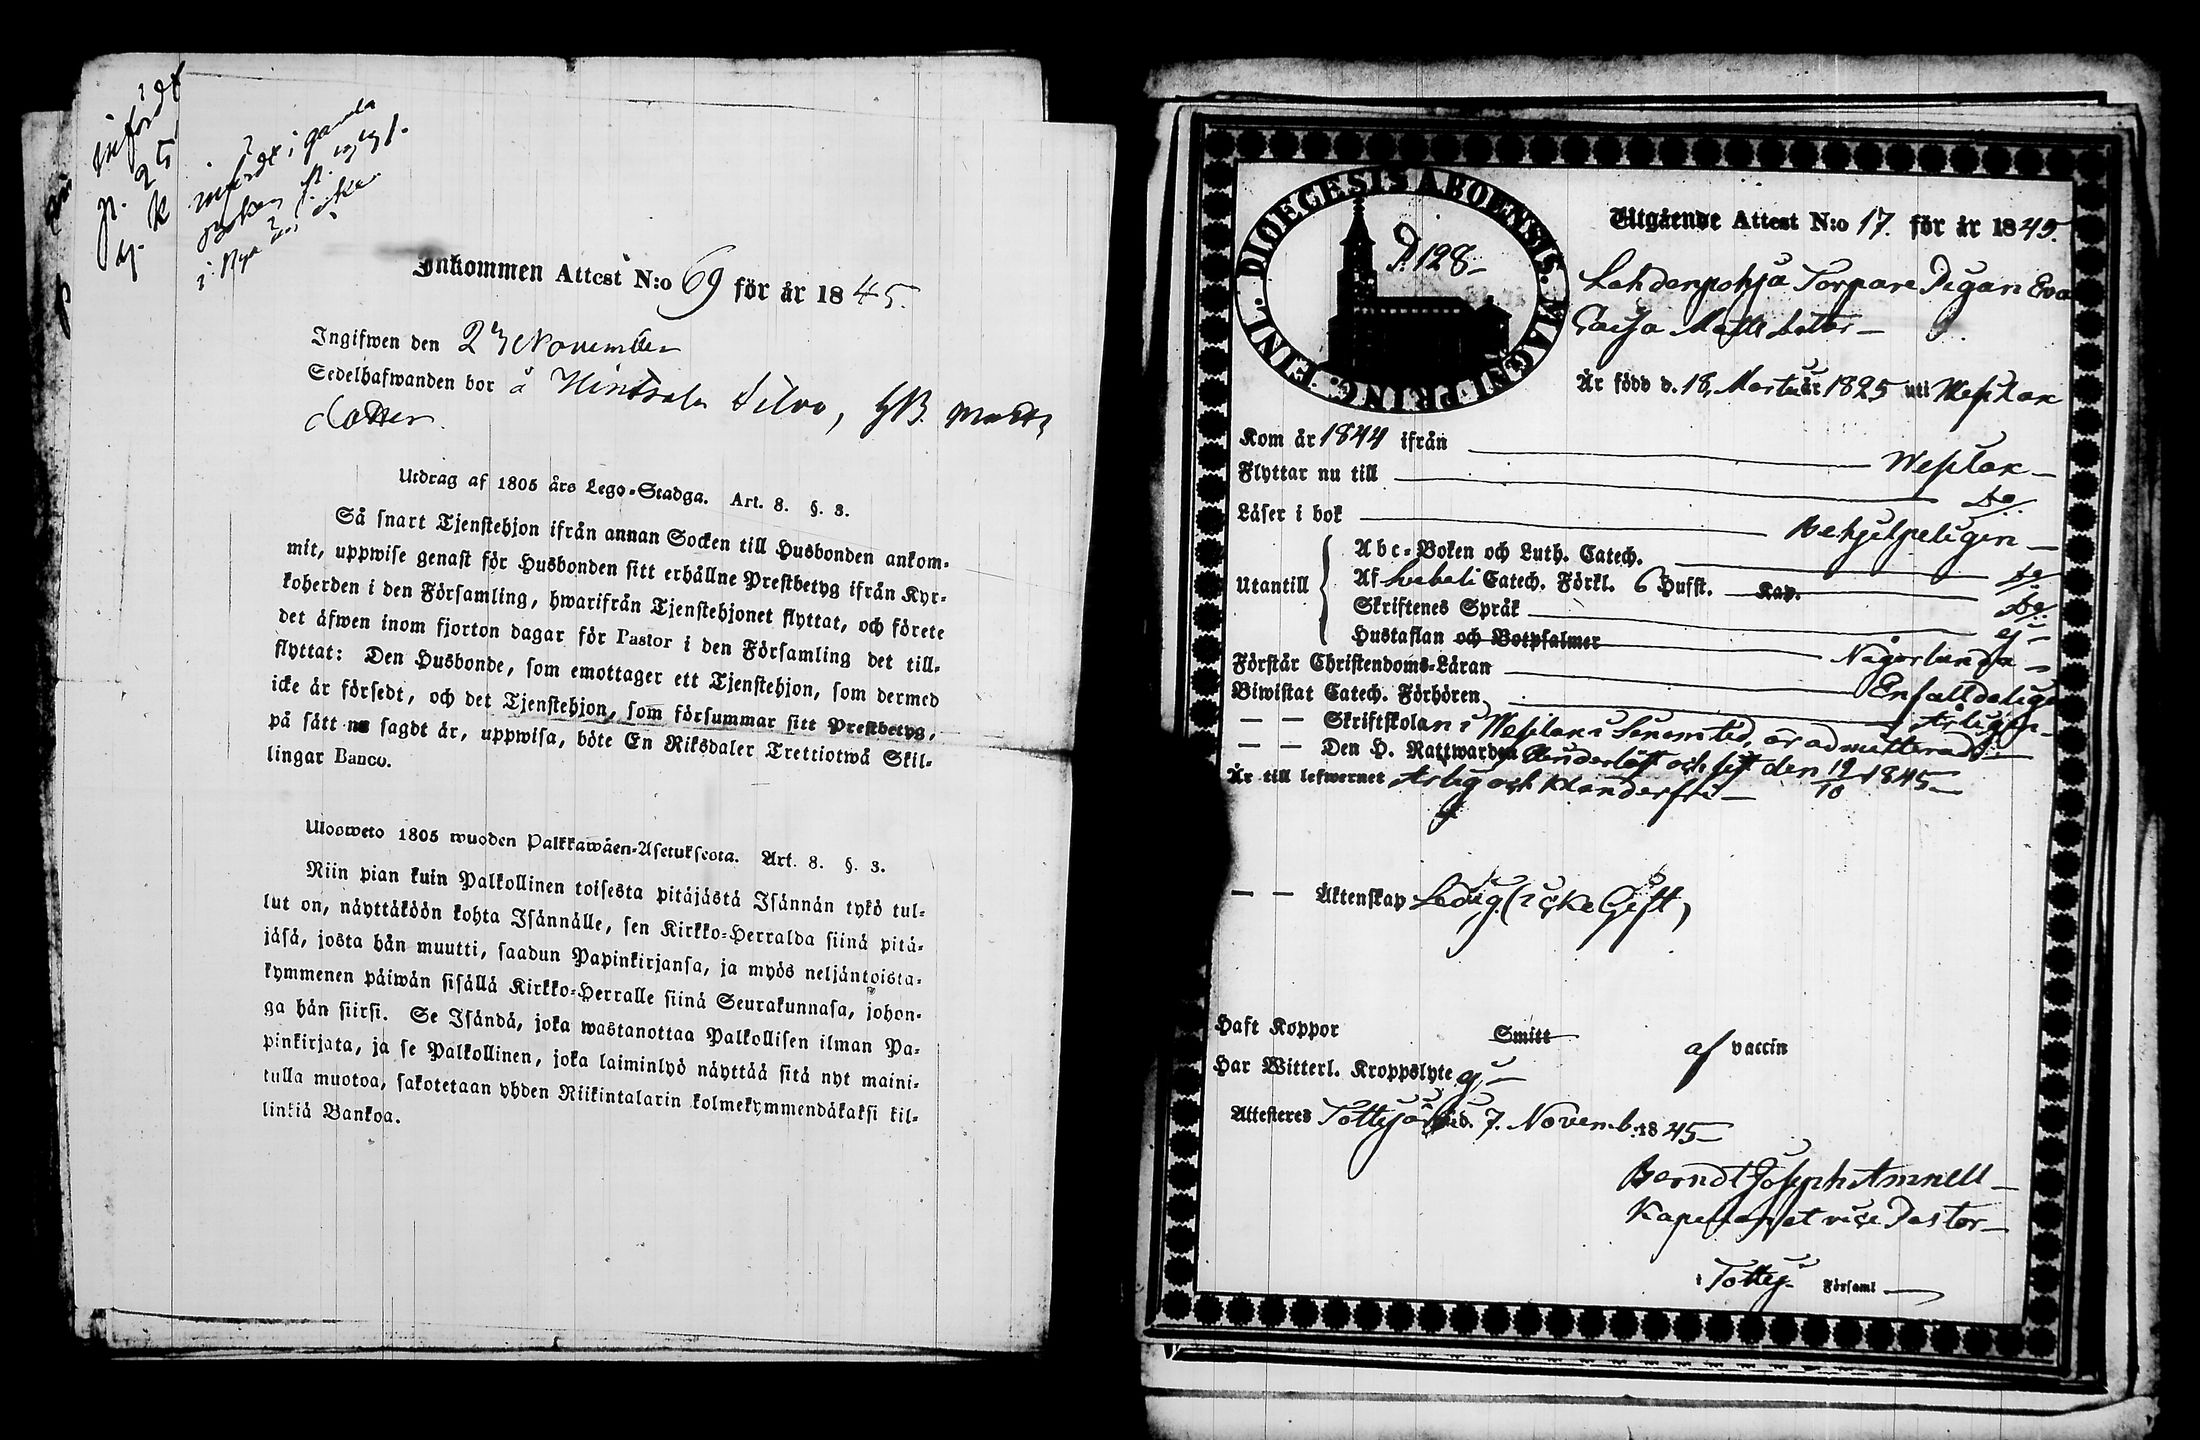 infördt
p. 25
infördt i gamla
boken
i Nya
Inkommen Attest N:o 69 för år 1845.
Ingifwen den 23 November
Sedelhafwanden bor å Hintsala Silvo,
dotter.
Utdrag af 1805 års Lego-Stadga. Art. 8. §. 3.
Så snart Tjenstehjon ifrån annan Socken till Husbonden ankom-
mit, uppwise genast för Husbonden sitt erhållne Prestbetyg ifrån Kyr-
koherden i den Församling, hwarifrån Tjenstehjonet flyttat, och förete
det äfwen inom fjorton dagar för Pastor i den Församling det till-
flyttat: Den Husbonde, som emottager ett Tjenstehjon, som dermed
icke är försedt, och det Tjenstehjon, som försummar sitt Prestbetyg,
på sätt nu sagdt är, uppwisa, böte En Riksdaler Trettiotwå Skil-
lingar Banco.
Ulosweto 1805 wuoden Palkkawäen-Asetuksesta. Art. 8. §. 3.
Niin pian kuin Palkollinen toisesta pitäjästä Isännän tykö tul-
lut on, näyttäköön kohta Isännälle, sen Kirkko-Herralda siinä pitä-
jäsä, josta hän muutti, saadun Papinkirjansa, ja myös neljäntoista-
kymmenen päiwän sisällä Kirkko-Herralle siinä Seurakunnasa, johon-
ga hän siirsi. Se Isändä, joka wastanottaa Palkollisen ilman Pa-
pinkirjata, ja se Palkollinen, joka laiminlyö näyttää sitä nyt maini-
tulla muotoa, sakotetaan yhden Riikintalarin kolmekymmendäkaksi kil-
linkiä Bankoa.
DIOECESIS ABOENSIS. MAGNI PRINC. FINL.
P. 128
Utgående Attest N:o 17. för år 1845.
Lehdenpohja Torpare Pigan Eva
Caisa Matts dotter
Är född d. 18 Martii år 1825 uti Wesilax
Kom år 1844 ifrån Wesilax
Flyttar nu till Do
Läser i bok Behjelpeligen
Utantill
Abc-Boken och Luth. Catech. Do
Af Svebeli Catech. Förkl. 6 Hufst. Kap. Do
Skriftenes Språk ej
Hustaflan och Botpsalmer Någorlunda
Förstår Christendoms-Läran Enfalldeligt
Biwistat Catech. Förhören Årligen
— — Skriftskolan i Wesilax i sinom tid, är admitterad
— — Den H. Nattwarden
Är till lefwernet Arlig och Klanderfri
— — Äktenskap Ledig (icke Gift)
Haft Koppor Smitt af vaccin
Har Witterl. Kroppslyte ej
Attesteres Tottijärvi d. 7. Novemb. 1845
Berndt Joseph Amnell
Kapellan et vice Pastor
i Tottij. Församl